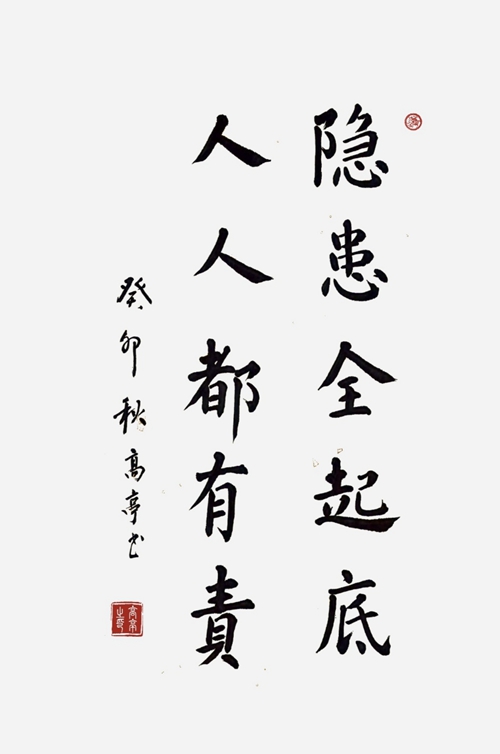 隐患全起底
人人都有責
癸卯秋高亭书
高亭之印